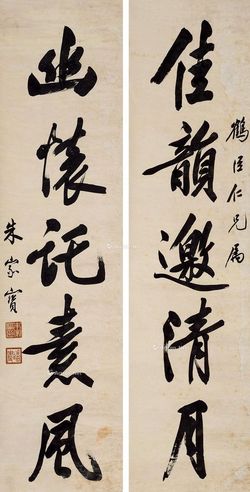 鶴臣仁兄属
佳韻邀清月
幽懷託素風
朱家寶